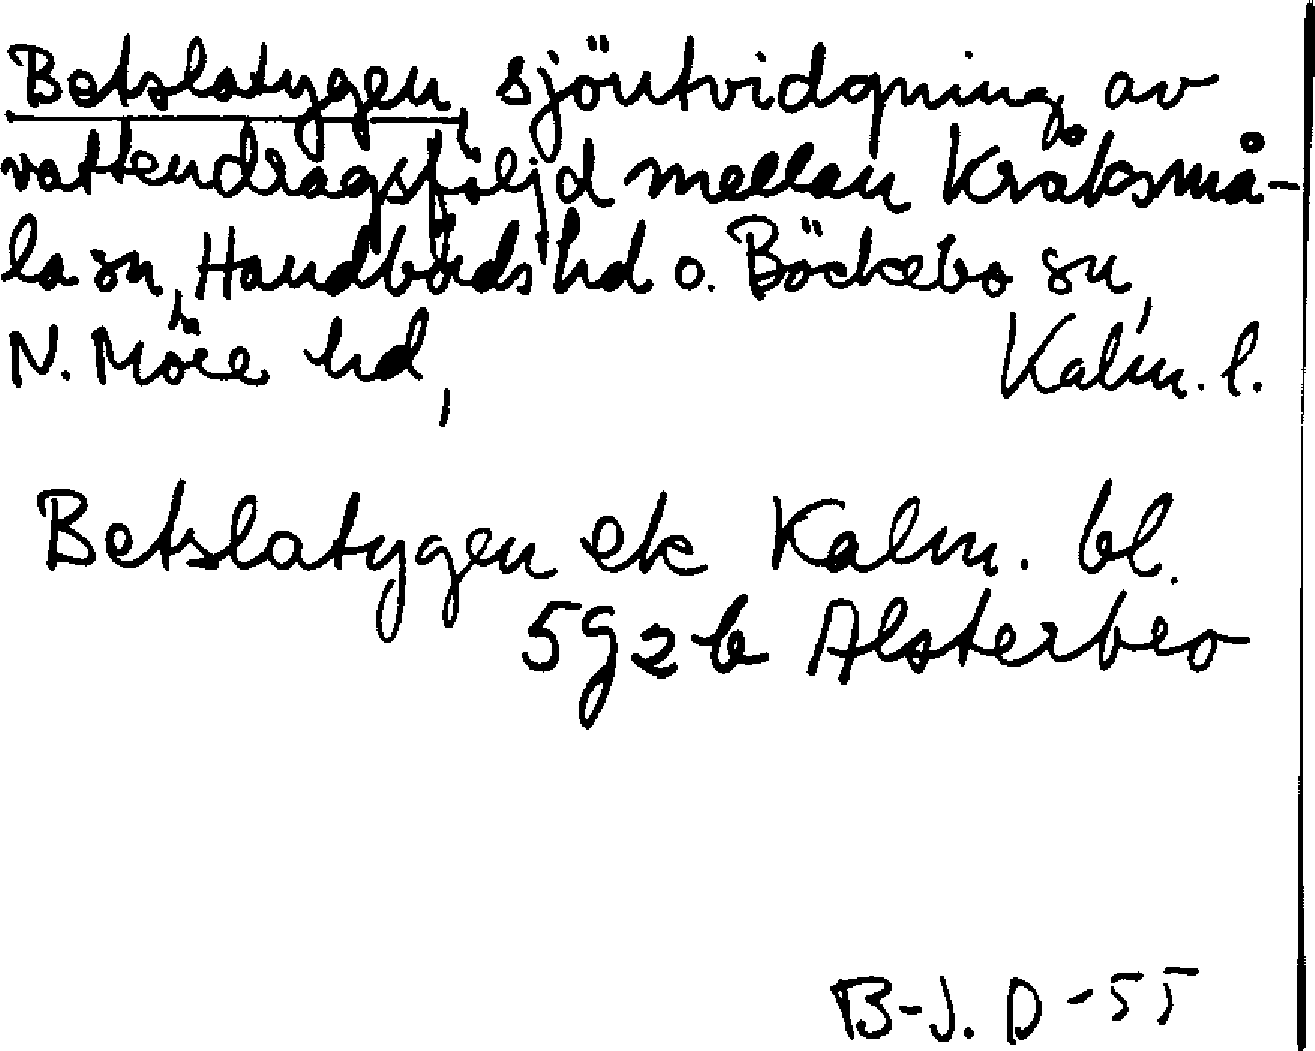 Betslatygen, sjöutvidgning av
vattendragsföljd mellan Kråksmå-
la sn, Handbörds hd o. Bäckebo sn,
N. Möre hd, Kalm. l.
Betslatygen ek Kalm. bl.
5g2b Alsterbro
B-J. D-55